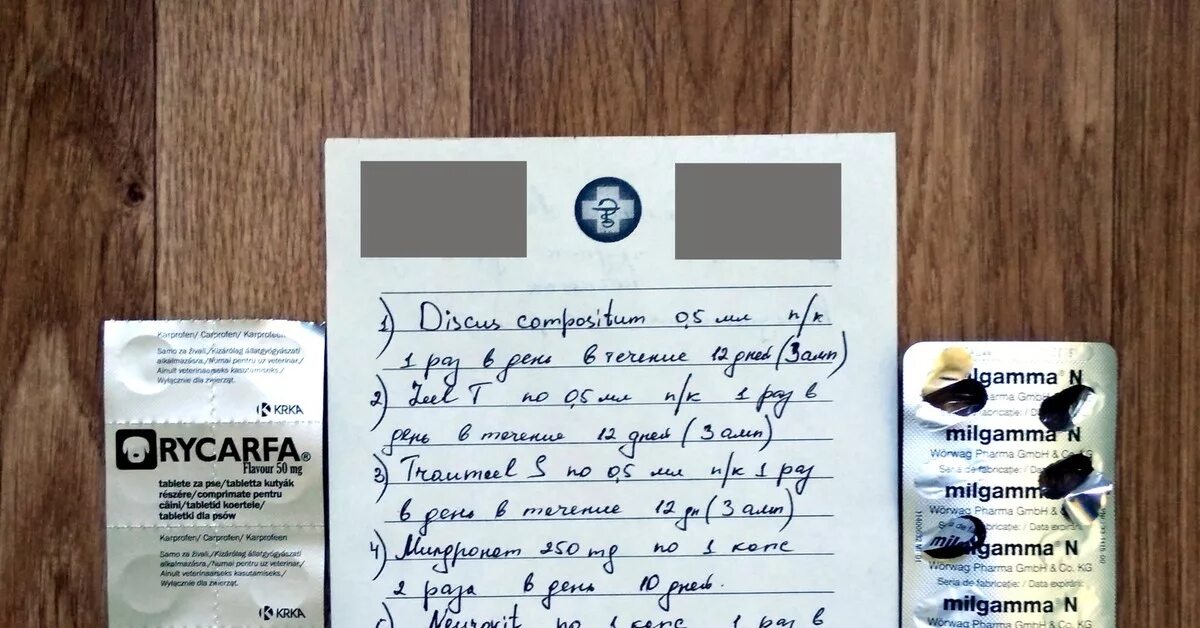 Karprofen/ Carprofen/ Karprofeen
Samo za živali./Kizárólag állatgyógyászati
alkalmazásra./Numai pentru uz veterinar./
Ainult veterinaarseks kasutamiseks./
Wyłącznie dla zwierząt.
KRKA
RYCARFA®
Flavour 50 mg
tablete za pse/tabletta kutyák
részére/comprimate pentru
câini/tabletid koertele/
tabletki dla psów
Karprofen/ Carprofen/ Karprofeen
Samo za živali./Kizárólag állatgyógyászati
alkalmazásra./Numai pentru uz veterinar./
Ainult veterinaarseks kasutamiseks./
Wyłącznie dla zwierząt.
KRKA
1) Discus compositum 0,5 мл п/к
1 раз в день в течение 12 дней (3 амп)
2) Zeel T по 0,5 мл п/к 1 раз в
день в течение 12 дней (3 амп)
3) Traumeel S по 0,5 мл п/к 1 раз
в день в течение 12 дн (3 амп)
4) Милдронат 250 mg по 1 капс
2 раза в день 10 дней.
Neurovit по 1 капс 1 раз в
lgamma® N
Pharma GmbH
milgamma® N
Wörwag Pharma GmbH & Co. KG
Seria de fabricaţie: /
milgamma
Wörwag Pharma GmbH &
Data expirării
mil gamma® N
Wörwag Pharma GmbH & Co. KG
Seria de fabricaţie: / Data expirării:
milgamma® N
Wörwag Pharma GmbH & Co. KG